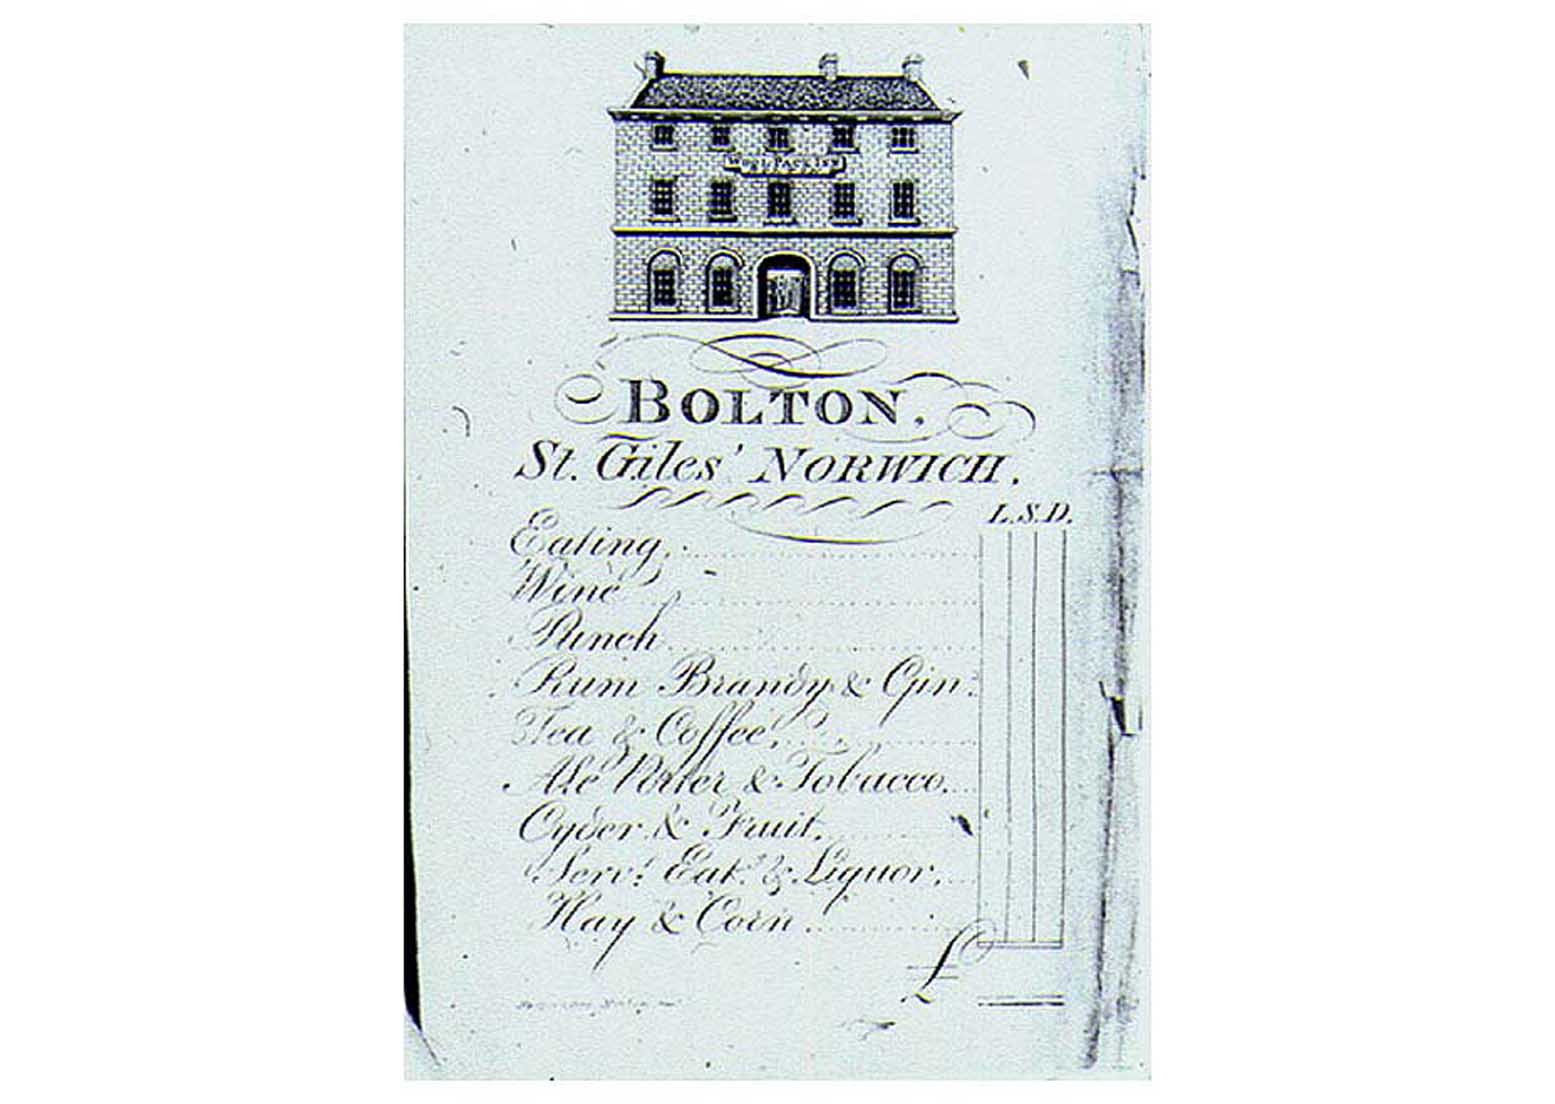 WOOLPACK INN
BOLTON,
St. Giles' NORWICH.
L.S.D.
Eating,
Wine
Punch
Rum Brandy & Gin
Tea & Coffee,
Ale Porter & Tobacco.
Cyder & Fruit.
Servts. Eatg. & Liquor.
Hay & Corn
£